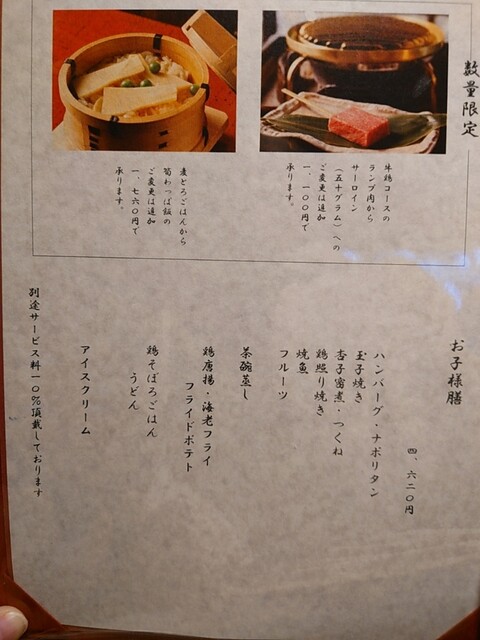 数量限定
牛鶏コースの
ランプ肉から
サーロイン
(五十グラム)への
ご変更は追加
一、一〇〇円で
承ります。
麦とろごはんから
筍わっぱ飯の
ご変更は追加
一、七六〇円で
承ります。
お子様膳
四、六二〇円
ハンバーグ・ナポリタン
玉子焼き
杏子蜜煮・つくね
鶏照り焼き
焼魚
フルーツ
茶碗蒸し
鶏唐揚・海老フライ
フライドポテト
鶏そぼろごはん
うどん
アイスクリーム
別途サービス料一〇%頂戴しております